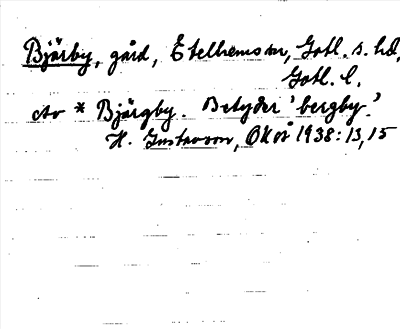 Bjärby, gård, Etelhems sn, Gotl. s. hd,
Gotl. l.
Av * Bjärgby. Betyder 'bergby'.
H. Gustavson, 1938: 13, 15